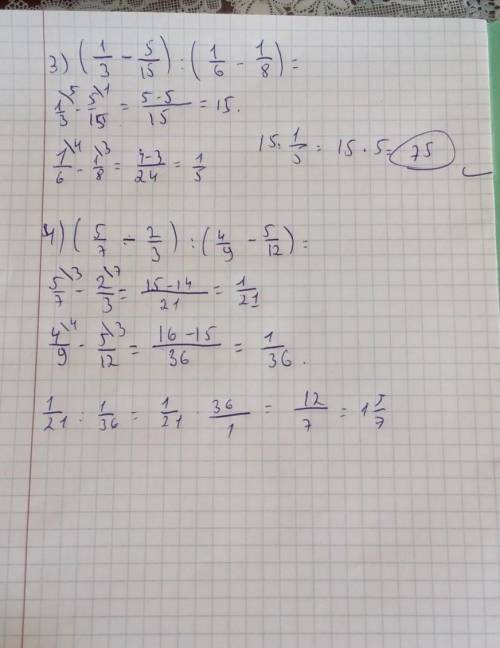 3) (1/3 - 5/15) : (1/6 - 1/8) =
1\5/3 - 5\1/15 = 5-5/15 = 15.
1\4/6 - 1\3/8 = 4-3/24 = 1/5
15 : 1/5 = 15 · 5 = 75
4) (5/7 - 2/3) : (4/9 - 5/12) =
5\3/7 - 2\7/3 = 15-14/21 = 1/21
4\4/9 - 5\3/12 = 16-15/36 = 1/36.
1/21 : 1/36 = 1/21 · 36/1 = 12/7 = 1 5/7